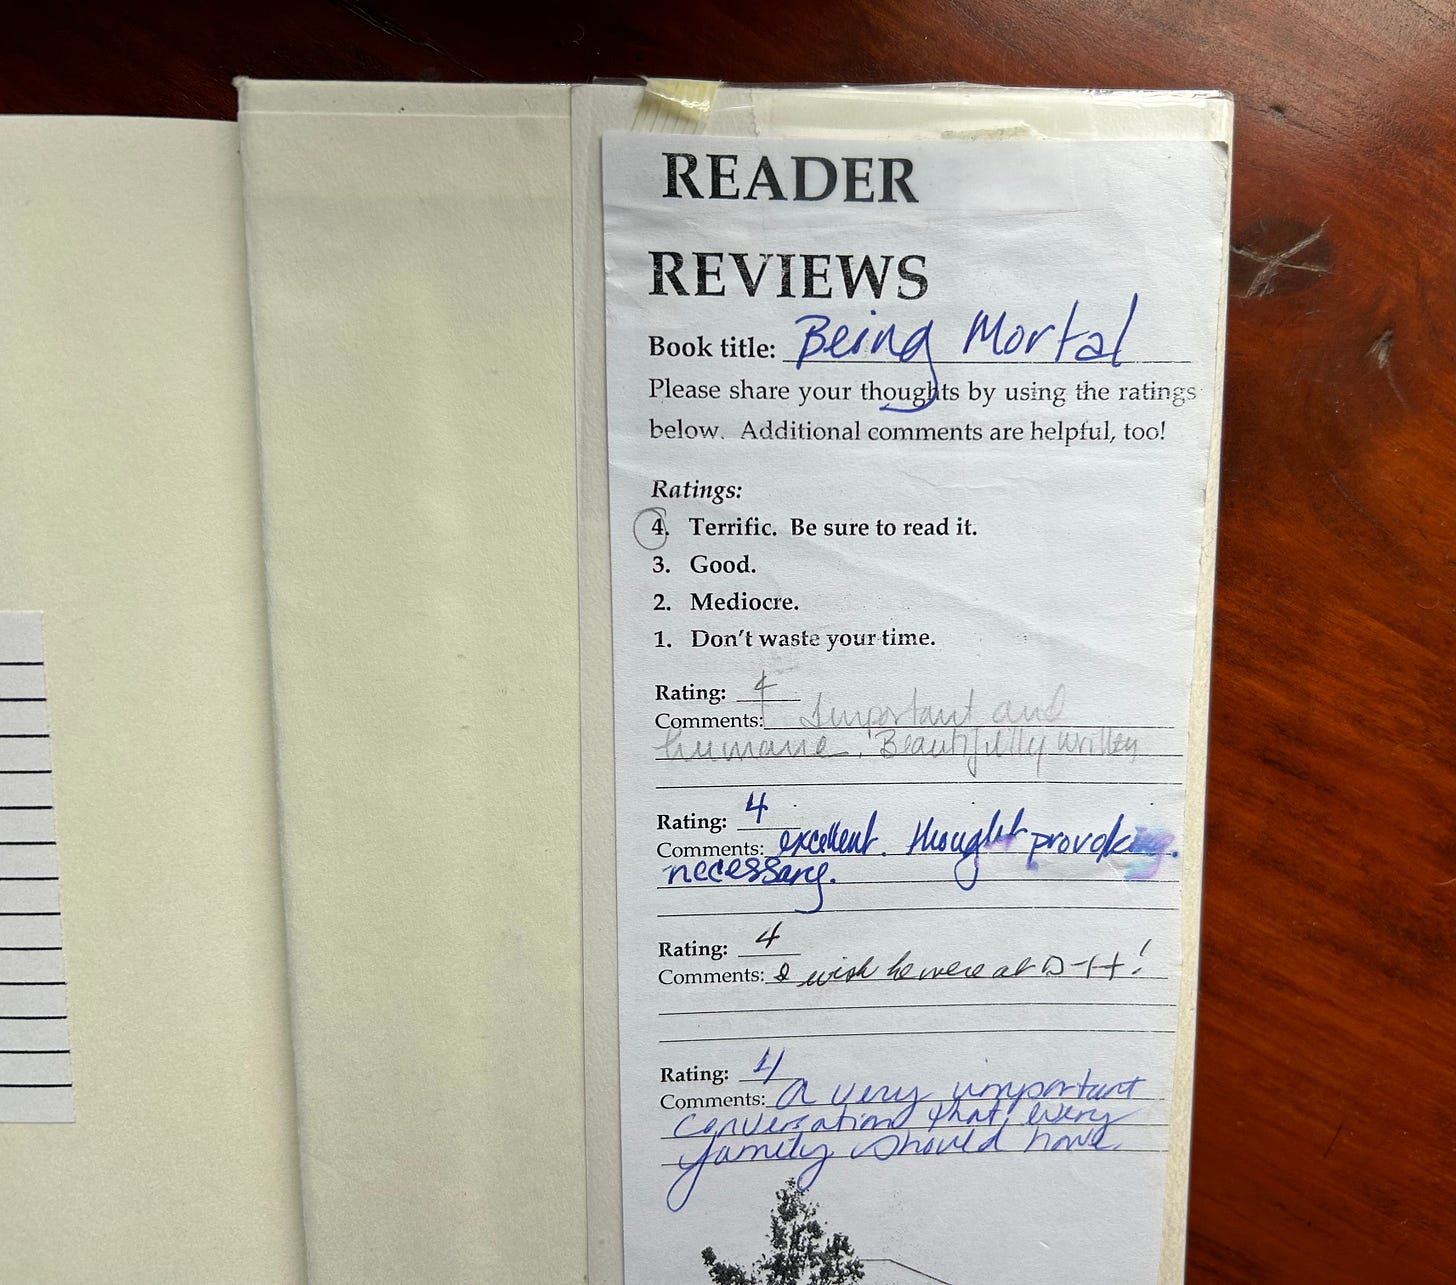 READER
REVIEWS
Book title: Being Mortal
Please share your thoughts by using the ratings
below. Additional comments are helpful, too!
Ratings:
4. Terrific. Be sure to read it.
3. Good.
2. Mediocre.
1. Don't waste your time.
Rating: 4
Comments: Important and
humane. Beautifully written
Rating: 4
Comments: excellent. thought provoking.
necessary.
Rating: 4
Comments: I wish he were at D-H!
Rating: 4
Comments: A very important
conversation that every
family should have.